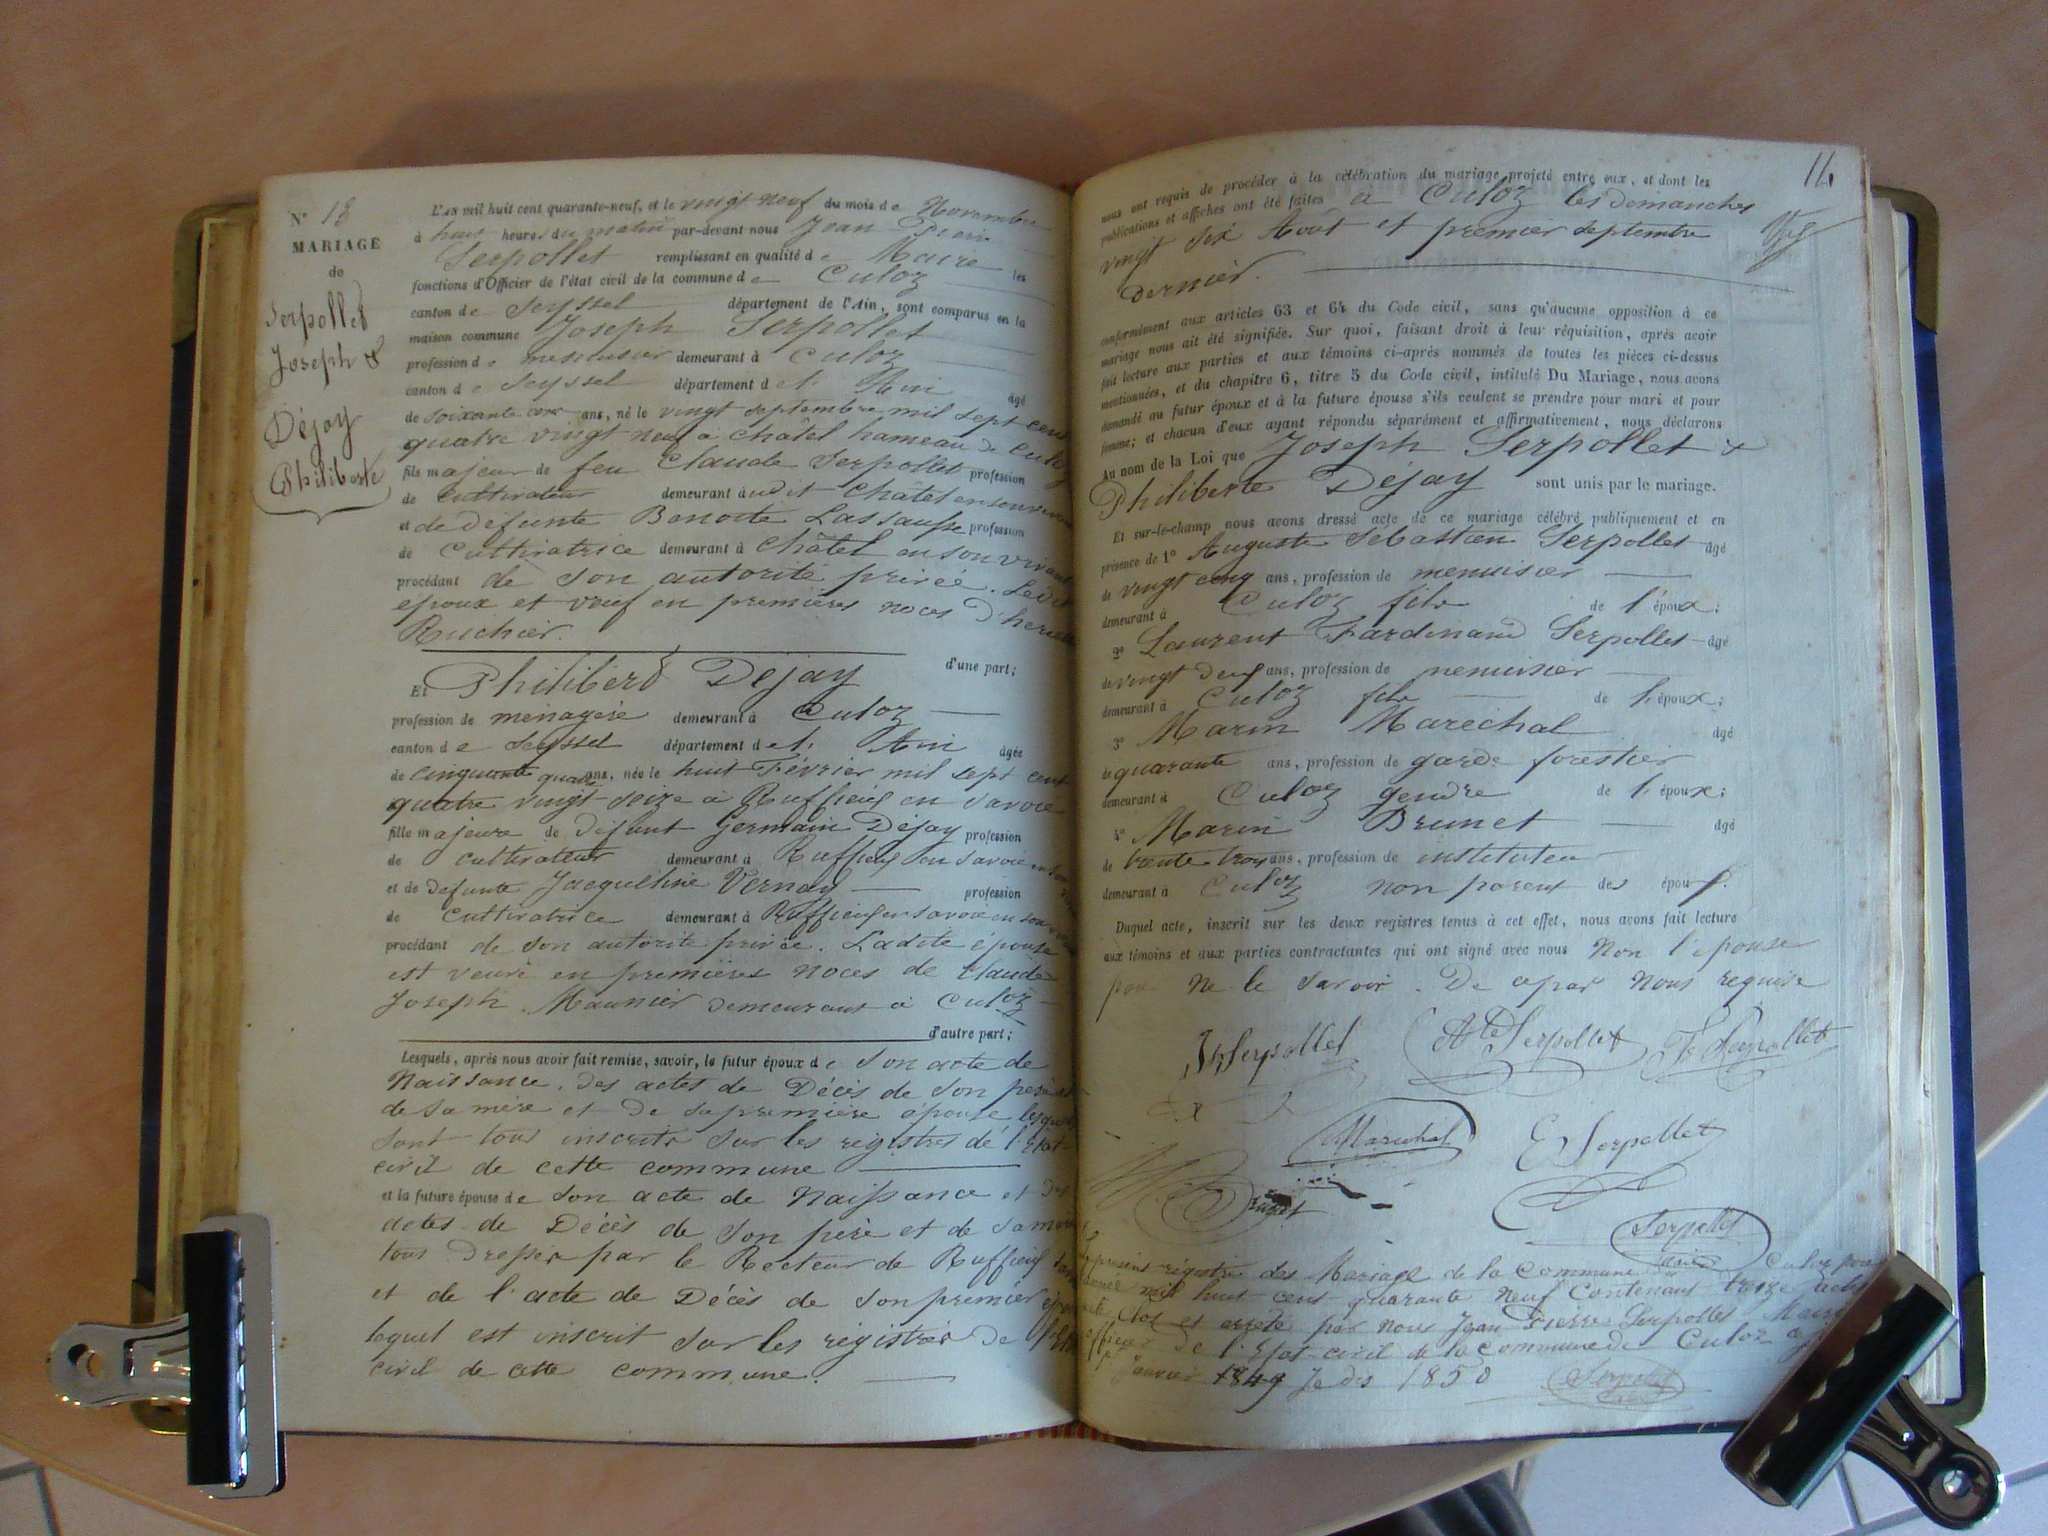 N° 13
MARIAGE
de
Serpollet
Joseph &
Déjay
Philiberte
L'AN mil huit cent quarante-neuf, et le vingt neuf du mois de Novembre
à huit heures du matin par-devant nous Jean Pierre
Serpollet remplissant en qualité de Maire les
fonctions d'Officier de l'état civil de la commune de Culoz
canton de Seyssel département de l'Ain, sont comparus en la
maison commune Joseph Serpollet
profession de menuisier demeurant à Culoz
canton de Seyssel département de l' Ain âgé
de soixante ans, né le vingt septembre mil sept cent
quatre vingt neuf à Châtel hameau de Culoz
fils majeur de feu Claude Serpollet profession
de cultivateur demeurant à udit Châtel en son vivant
et de défunte Benoite Lassausse profession
de Cultivatrice demeurant à Châtel en son vivant
procédant de son autorité privée. Ledit
époux et veuf en premières noces d'
Ruchier.
d'une part;
Et Philiberd Déjay
profession de ménagère demeurant à Culoz
canton de Seyssel département de l' Ain âgée
de cinquante quatre ans, née le huit Février mil sept cent
quatre vingt seize à Ruffieux en Savoie
fille majeure de défunt Germain Déjay profession
de cultivateur demeurant à Ruffieux en Savoie
et de defunte Jacqueline Vernay profession
de cultivatrice demeurant à Ruffieux en Savoie en son
procédant de son autorité privée. Ladite épouse
est veuve en premières noces de Claude
Joseph Maunier demeurant à Culoz
d'autre part;
Lesquels, après nous avoir fait remise, savoir, le futur époux de son acte de
Naissance, des actes de Décès de son père et
de sa mère et de sa première épouse lesquels
sont tous inscrits sur les régistres de l'Etat-
civil de cette commune
et la future épouse de son acte de Naissance et des
actes de Décès de son père et de sa mère
tous dressés par le Recteur de Ruffieux
et de l'acte de Décès de son premier époux
lequel est inscrit sur les régistres de l'Etat
civil de cette commune.
14
nous ont requis de procéder à la célébration du mariage projeté entre eux, et dont les
publications et affiches ont été faites à Culoz les Demanches
vingt six Août et premier septembre
Dernier.
conformément aux articles 63 et 64 du Code civil, sans qu'aucune opposition à ce
mariage nous ait été signifiée. Sur quoi, faisant droit à leur réquisition, après avoir
fait lecture aux parties et aux témoins ci-après nommés de toutes les pièces ci-dessus
mentionnées, et du chapitre 6, titre 5 du Code civil, intitulé Du Mariage, nous avons
demandé au futur époux et à la future épouse s'ils veulent se prendre pour mari et pour
femme; et chacun d'eux ayant répondu séparément et affirmativement, nous déclarons
Au nom de la Loi que Joseph Serpollet &
Philiberte Déjay sont unis par le mariage.
Et sur-le-champ nous avons dressé acte de ce mariage célébré publiquement et en
présence de 1° Auguste Sébastien Serpollet âgé
de vingt cinq ans, profession de menuisier
demeurant à Culoz fils de l'époux;
2° Laurent Fardinand Serpollet âgé
de vingt deux ans, profession de menuisier
demeurant à Culoz fils de l'époux;
3° Marin Maréchal âgé
de quarante ans, profession de garde forestier
demeurant à Culoz gendre de l'époux;
4° Marin Brunet âgé
de trente trois ans, profession de instituteur
demeurant à Culoz non parent des époux.
Duquel acte, inscrit sur les deux registres tenus à cet effet, nous avons fait lecture
aux témoins et aux parties contractantes qui ont signé avec nous Non l'épouse
pour ne le savoir. De apar Nous requise
Jh Serpollet Ate Serpollet Fd Serpollet
Maréchal E Serpollet
Brunet
Serpollet
maire
présent régistre des Mariage de la Commune de Culoz pour
année mil huit cent quarante neuf Contenant treize actes
Clos et arrêté par nous Jean Pierre Serpollet Maire
officier de l'Etat civil de la commune de Culoz
Janvier 1849 Je dis 1850
Serpollet